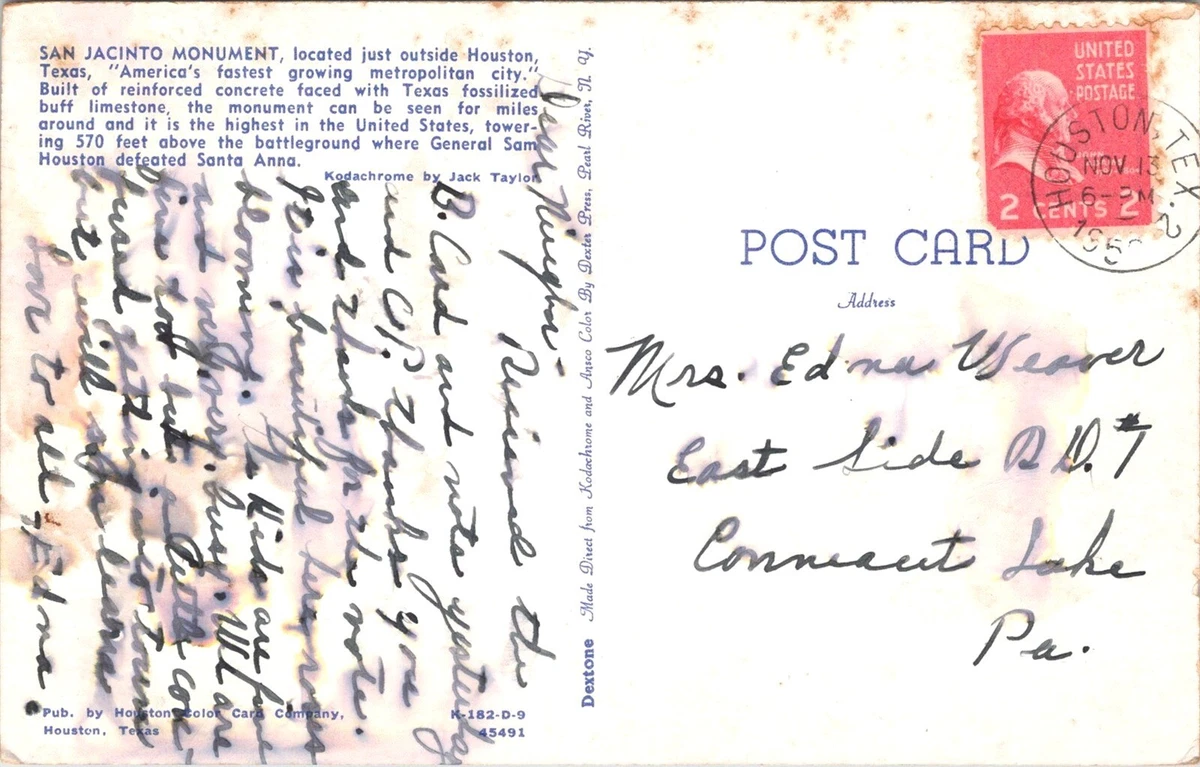 SAN JACINTO MONUMENT, located just outside Houston,
Texas, "America's fastest growing metropolitan city."
Built of reinforced concrete faced with Texas fossilized
buff limestone, the monument can be seen for miles
around and it is the highest in the United States, tower-
ing 570 feet above the battleground where General Sam
Houston defeated Santa Anna.
Kodachrome by Jack Taylor
Dear Neighbor -
Received the
B. Card and note yesterday
and O.P. Thanks you
and thanks for the note.
It is beautiful here roses
blooming. Kids are fine
and very busy. We are
fine too but a little con-
fused getting into town
but will soon learn
Love to all - Edna.
Pub. by Houston Color Card Company,
Houston, Texas
K-182-D-9
45491
Dextone Made Direct from Kodachrome and Ansco Color By Dexter Press, Pearl River, N. Y.
UNITED
STATES
POSTAGE
JOHN
2 CENTS 2
HOUSTON, TEX. 2
NOV. 13
6-PM
195
POST CARD
Address
Mrs. Edna Weaver
East Side R.D. #1
Conneaut Lake
Pa.